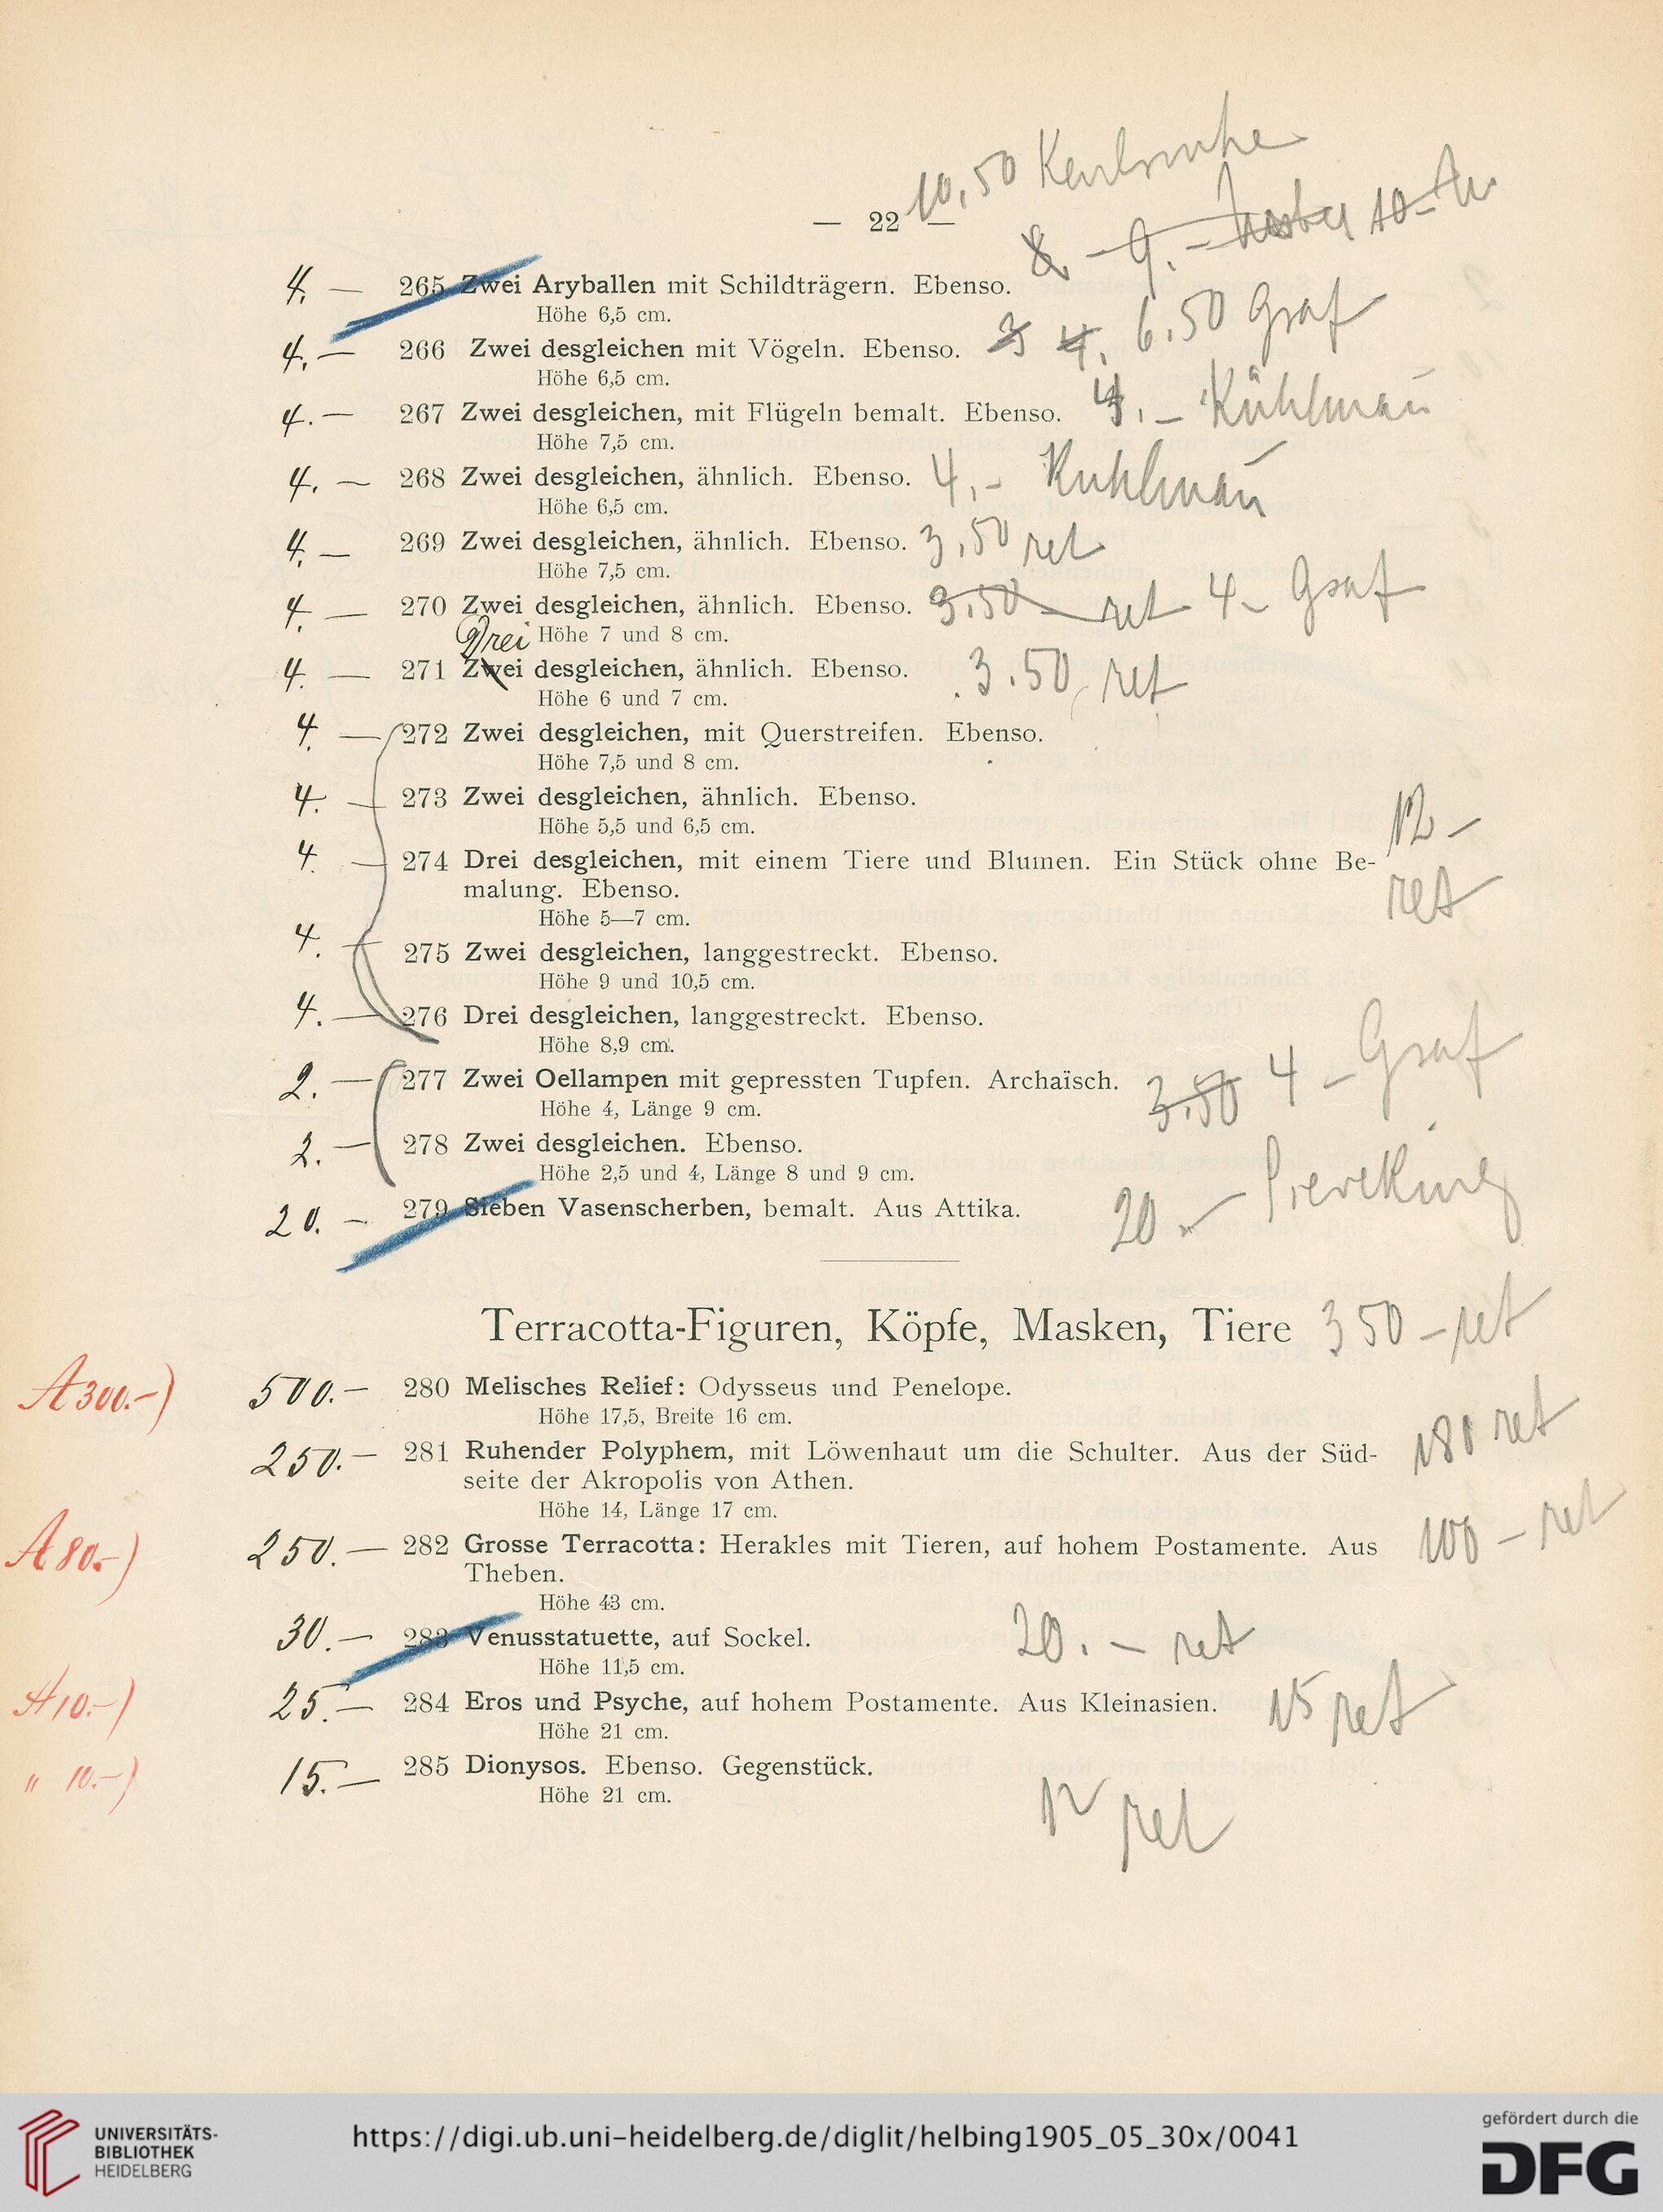 10,50 Karlsruhe
— 22 —
8. - 9. - 10 -
4. — 265 Zwei Aryballen mit Schildträgern. Ebenso.
Höhe 6,5 cm.
4. — 266 Zwei desgleichen mit Vögeln. Ebenso. 3 4. 6.50 Graf
Höhe 6,5 cm.
4. — 267 Zwei desgleichen, mit Flügeln bemalt. Ebenso. 4. — Kühlmañ
Höhe 7,5 cm.
4. — 268 Zwei desgleichen, ähnlich. Ebenso. 4.- Kuhlmañ
Höhe 6,5 cm.
4. — 269 Zwei desgleichen, ähnlich. Ebenso. 3,50 ret
Höhe 7,5 cm.
4. — 270 Zwei desgleichen, ähnlich. Ebenso. 3,50 ret 4 - Graf
Drei Höhe 7 und 8 cm.
4. — 271 Zwei desgleichen, ähnlich. Ebenso. 3.50 ret
Höhe 6 und 7 cm.
4. — 272 Zwei desgleichen, mit Querstreifen. Ebenso.
Höhe 7,5 und 8 cm.
4. — 273 Zwei desgleichen, ähnlich. Ebenso.
Höhe 5,5 und 6,5 cm.
12 -
4. — 274 Drei desgleichen, mit einem Tiere und Blumen. Ein Stück ohne Be-
malung. Ebenso. ret
Höhe 5—7 cm.
4. — 275 Zwei desgleichen, langgestreckt. Ebenso.
Höhe 9 und 10,5 cm.
4. — 276 Drei desgleichen, langgestreckt. Ebenso.
Höhe 8,9 cm.
2. — 277 Zwei Oellampen mit gepressten Tupfen. Archaïsch. 3.50 4 - Graf
Höhe 4, Länge 9 cm.
2. — 278 Zwei desgleichen. Ebenso.
Höhe 2,5 und 4, Länge 8 und 9 cm.
20. — 279 Sieben Vasenscherben, bemalt. Aus Attika. 20 - Sieveking
Terracotta-Figuren, Köpfe, Masken, Tiere 350 - ret
A 300.-) 500.— 280 Melisches Relief: Odysseus und Penelope.
Höhe 17,5, Breite 16 cm.
250.— 281 Ruhender Polyphem, mit Löwenhaut um die Schulter. Aus der Süd- 180 ret
seite der Akropolis von Athen.
Höhe 14, Länge 17 cm.
A 80.-) 250.— 282 Grosse Terracotta: Herakles mit Tieren, auf hohem Postamente. Aus 100 - ret
Theben.
Höhe 43 cm.
30.— 283 Venusstatuette, auf Sockel. 20. — ret
Höhe 11,5 cm.
A 10.-) 25.— 284 Eros und Psyche, auf hohem Postamente. Aus Kleinasien. 15 ret
Höhe 21 cm.
" 10.-) 15.— 285 Dionysos. Ebenso. Gegenstück.
Höhe 21 cm. 12 ret
UNIVERSITÄTS-
BIBLIOTHEK
HEIDELBERG
https://digi.ub.uni-heidelberg.de/diglit/helbing1905_05_30x/0041
gefördert durch die
DFG